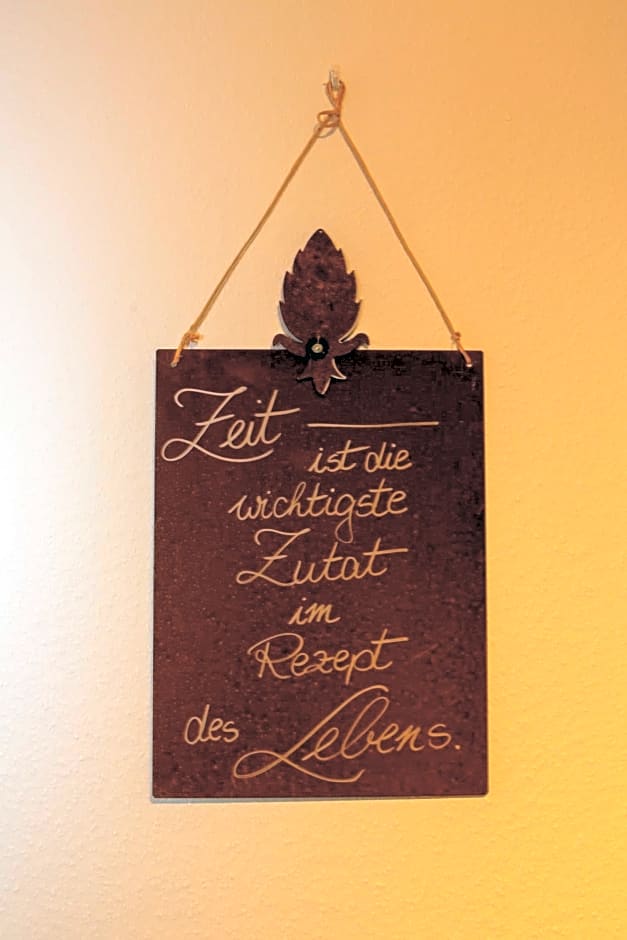 Zeit
ist die
wichtigste
Zutat
im
Rezept
des Lebens.